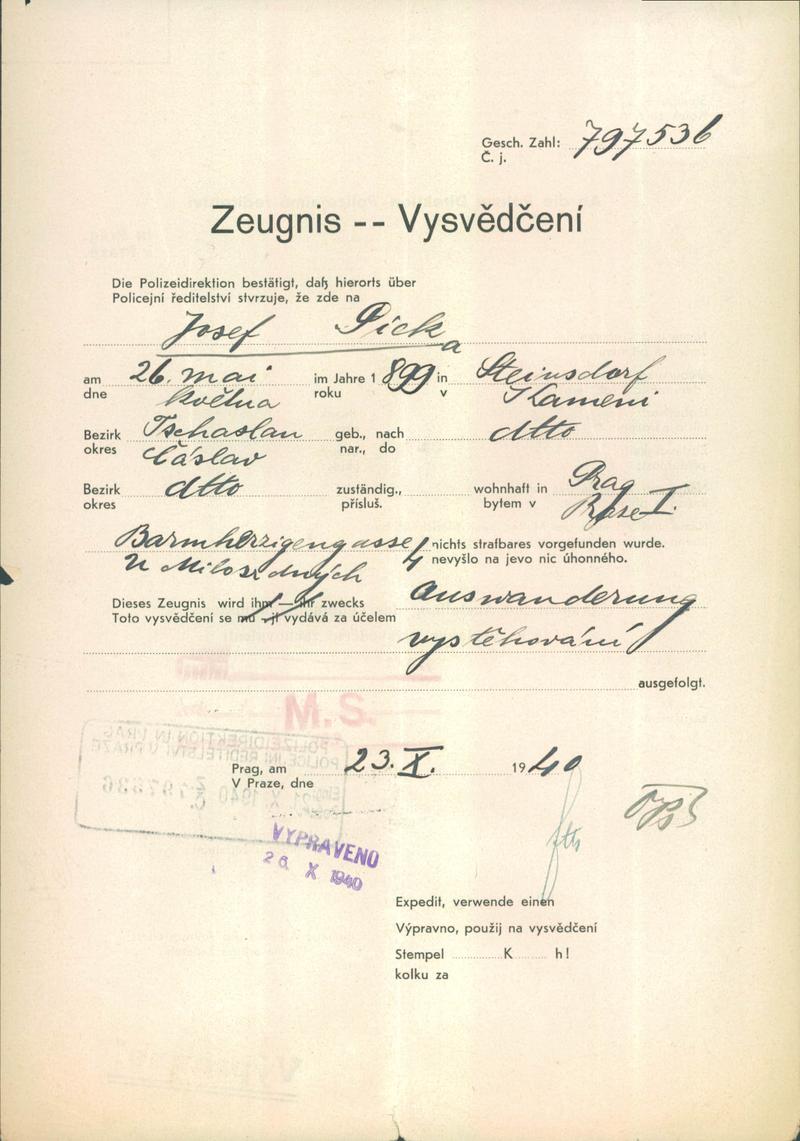 Gesch. Zahl: 797536
Č. j.
Zeugnis -- Vysvědčení
Die Polizeidirektion bestätigt, daß hierorts über
Policejní ředitelství stvrzuje, že zde na
Josef Pick
a
am 26. mai im Jahre 1899 in Steinsdorf
dne května roku v Kameni
Bezirk Tschaslau geb., nach dtto
okres Čáslav nar., do
Bezirk dtto zuständig., wohnhaft in Prag
okres přísluš. bytem v Praze I.
Barmherzigengasse 4 nichts strafbares vorgefunden wurde.
U Milosrdných nevyšlo na jevo nic úhonného.
Dieses Zeugnis wird ihm — ihr zwecks Auswanderung
Toto vysvědčení se mu — jí vydává za účelem
vystěhování
ausgefolgt.
M.S.
POLIZEIDIREKTION IN PRAG
POLICEJNÍ ŘEDITELSTVÍ V PRAZE
Prag, am 23. X. 1940
V Praze, dne
X. 1940
797536
VYPRAVENO
26. X 1940
Expedit, verwende einen
Výpravno, použij na vysvědčení
Stempel K h!
kolku za